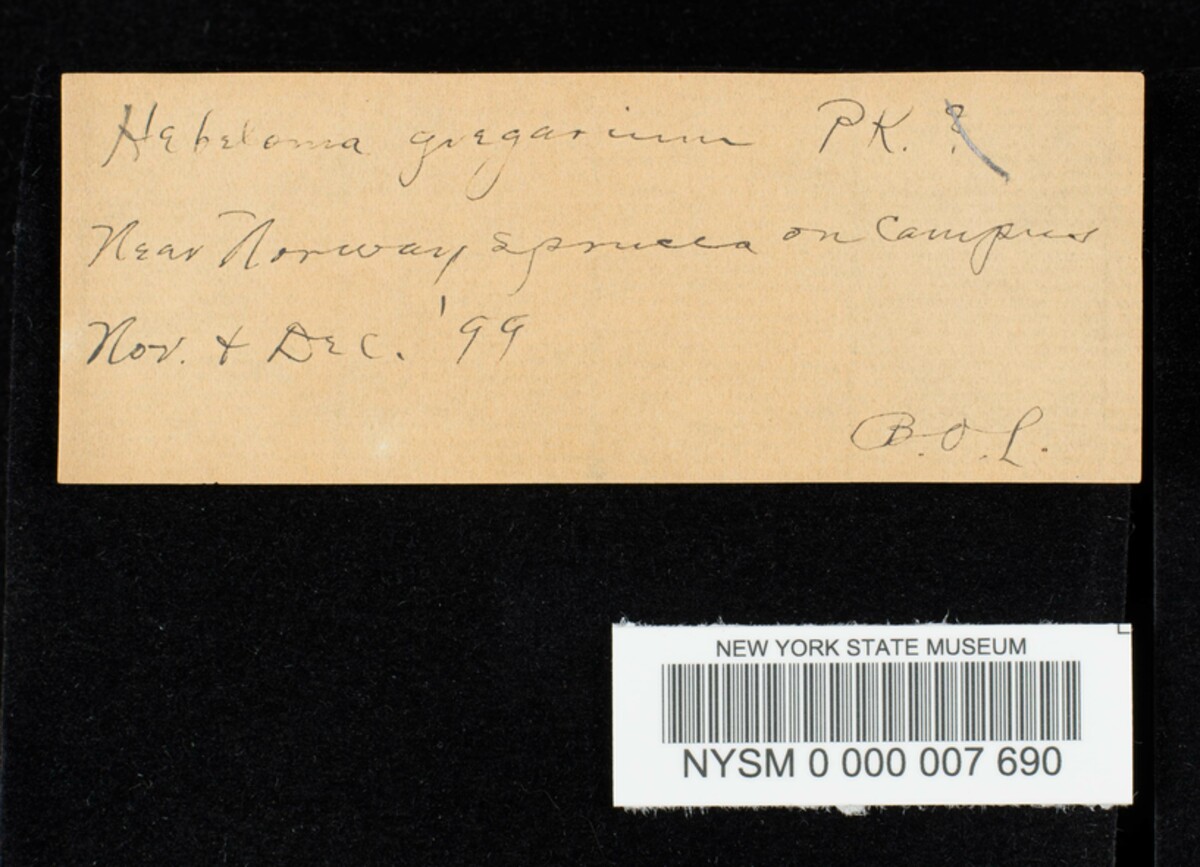 Hebeloma gregarium PK. ?
Near Norway Spruces on Campus
Nov. + Dec. '99
B.O.L.
NEW YORK STATE MUSEUM
NYSM 0 000 007 690